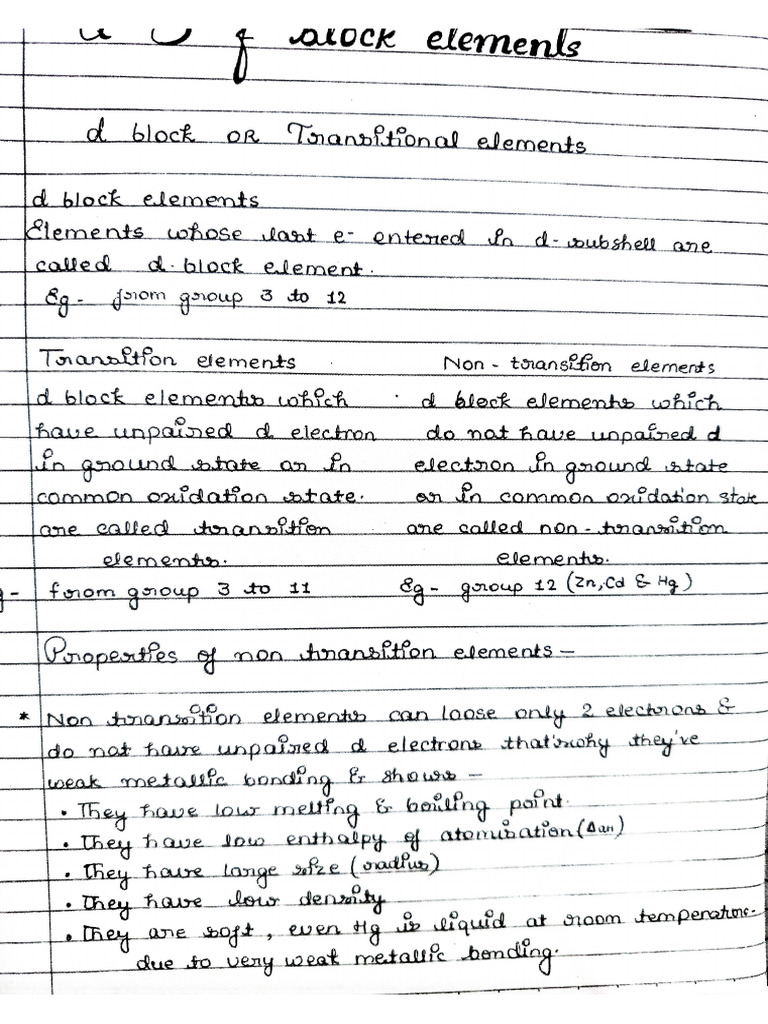 f block elements
d block OR Transitional elements
d block elements
Elements whose last e- entered in d-subshell are
called d-block element.
Eg- from group 3 to 12
Transition elements
Non-transition elements
d block elements which
have unpaired d electron
in ground state or in
common oxidation state.
are called transition
elements.
from group 3 to 11
d block elements which
do not have unpaired d
electron in ground state
or in common oxidation state
are called non-transition
elements.
Eg- group 12 (Zn, Cd & Hg)
Properties of non transition elements-
* Non transition elements can loose only 2 electrons &
do not have unpaired d electrons that'swhy they've
weak metallic bonding & shows -
• They have low melting & boiling point.
• They have low enthalpy of atomisation (
• They have large size (radius)
• They have low density
• They are soft, even Hg is liquid at room temperature.
due to very weak metallic bonding.